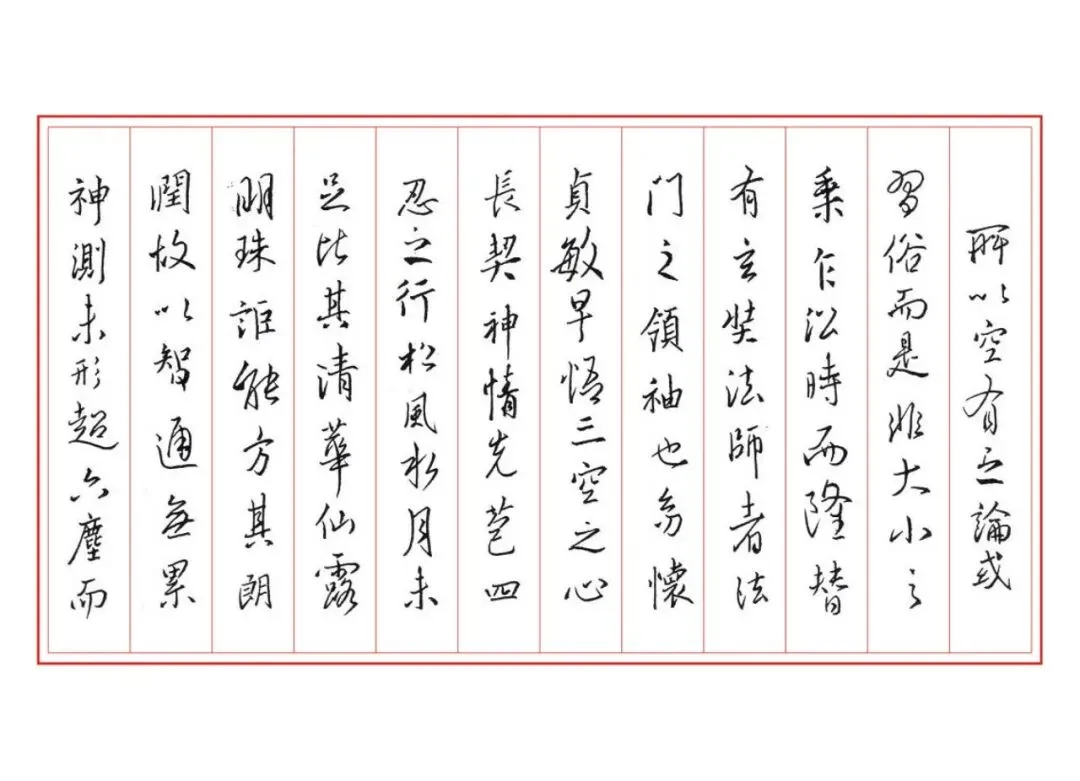 所以空有之論或
習俗而是非大小之
乘乍沿時而隆替
有玄奘法師者法
門之領袖也幼懷
貞敏早悟三空之心
長契神情先苞四
忍之行松風水月未
足比其清華仙露
明珠詎能方其朗
潤故以智通無累
神測未形超六塵而